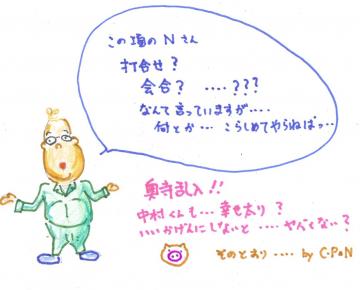 この頃のNさん
打合せ?
会合? ‥‥???
なんて言っていますが‥‥
何とか‥‥こらしめてやらねばっ‥
奥寺乱入!!
中村くんも‥‥幸せ太り?
いいかげんにしないと‥‥やバくない?
そのとおり‥‥‥ by C・P・N